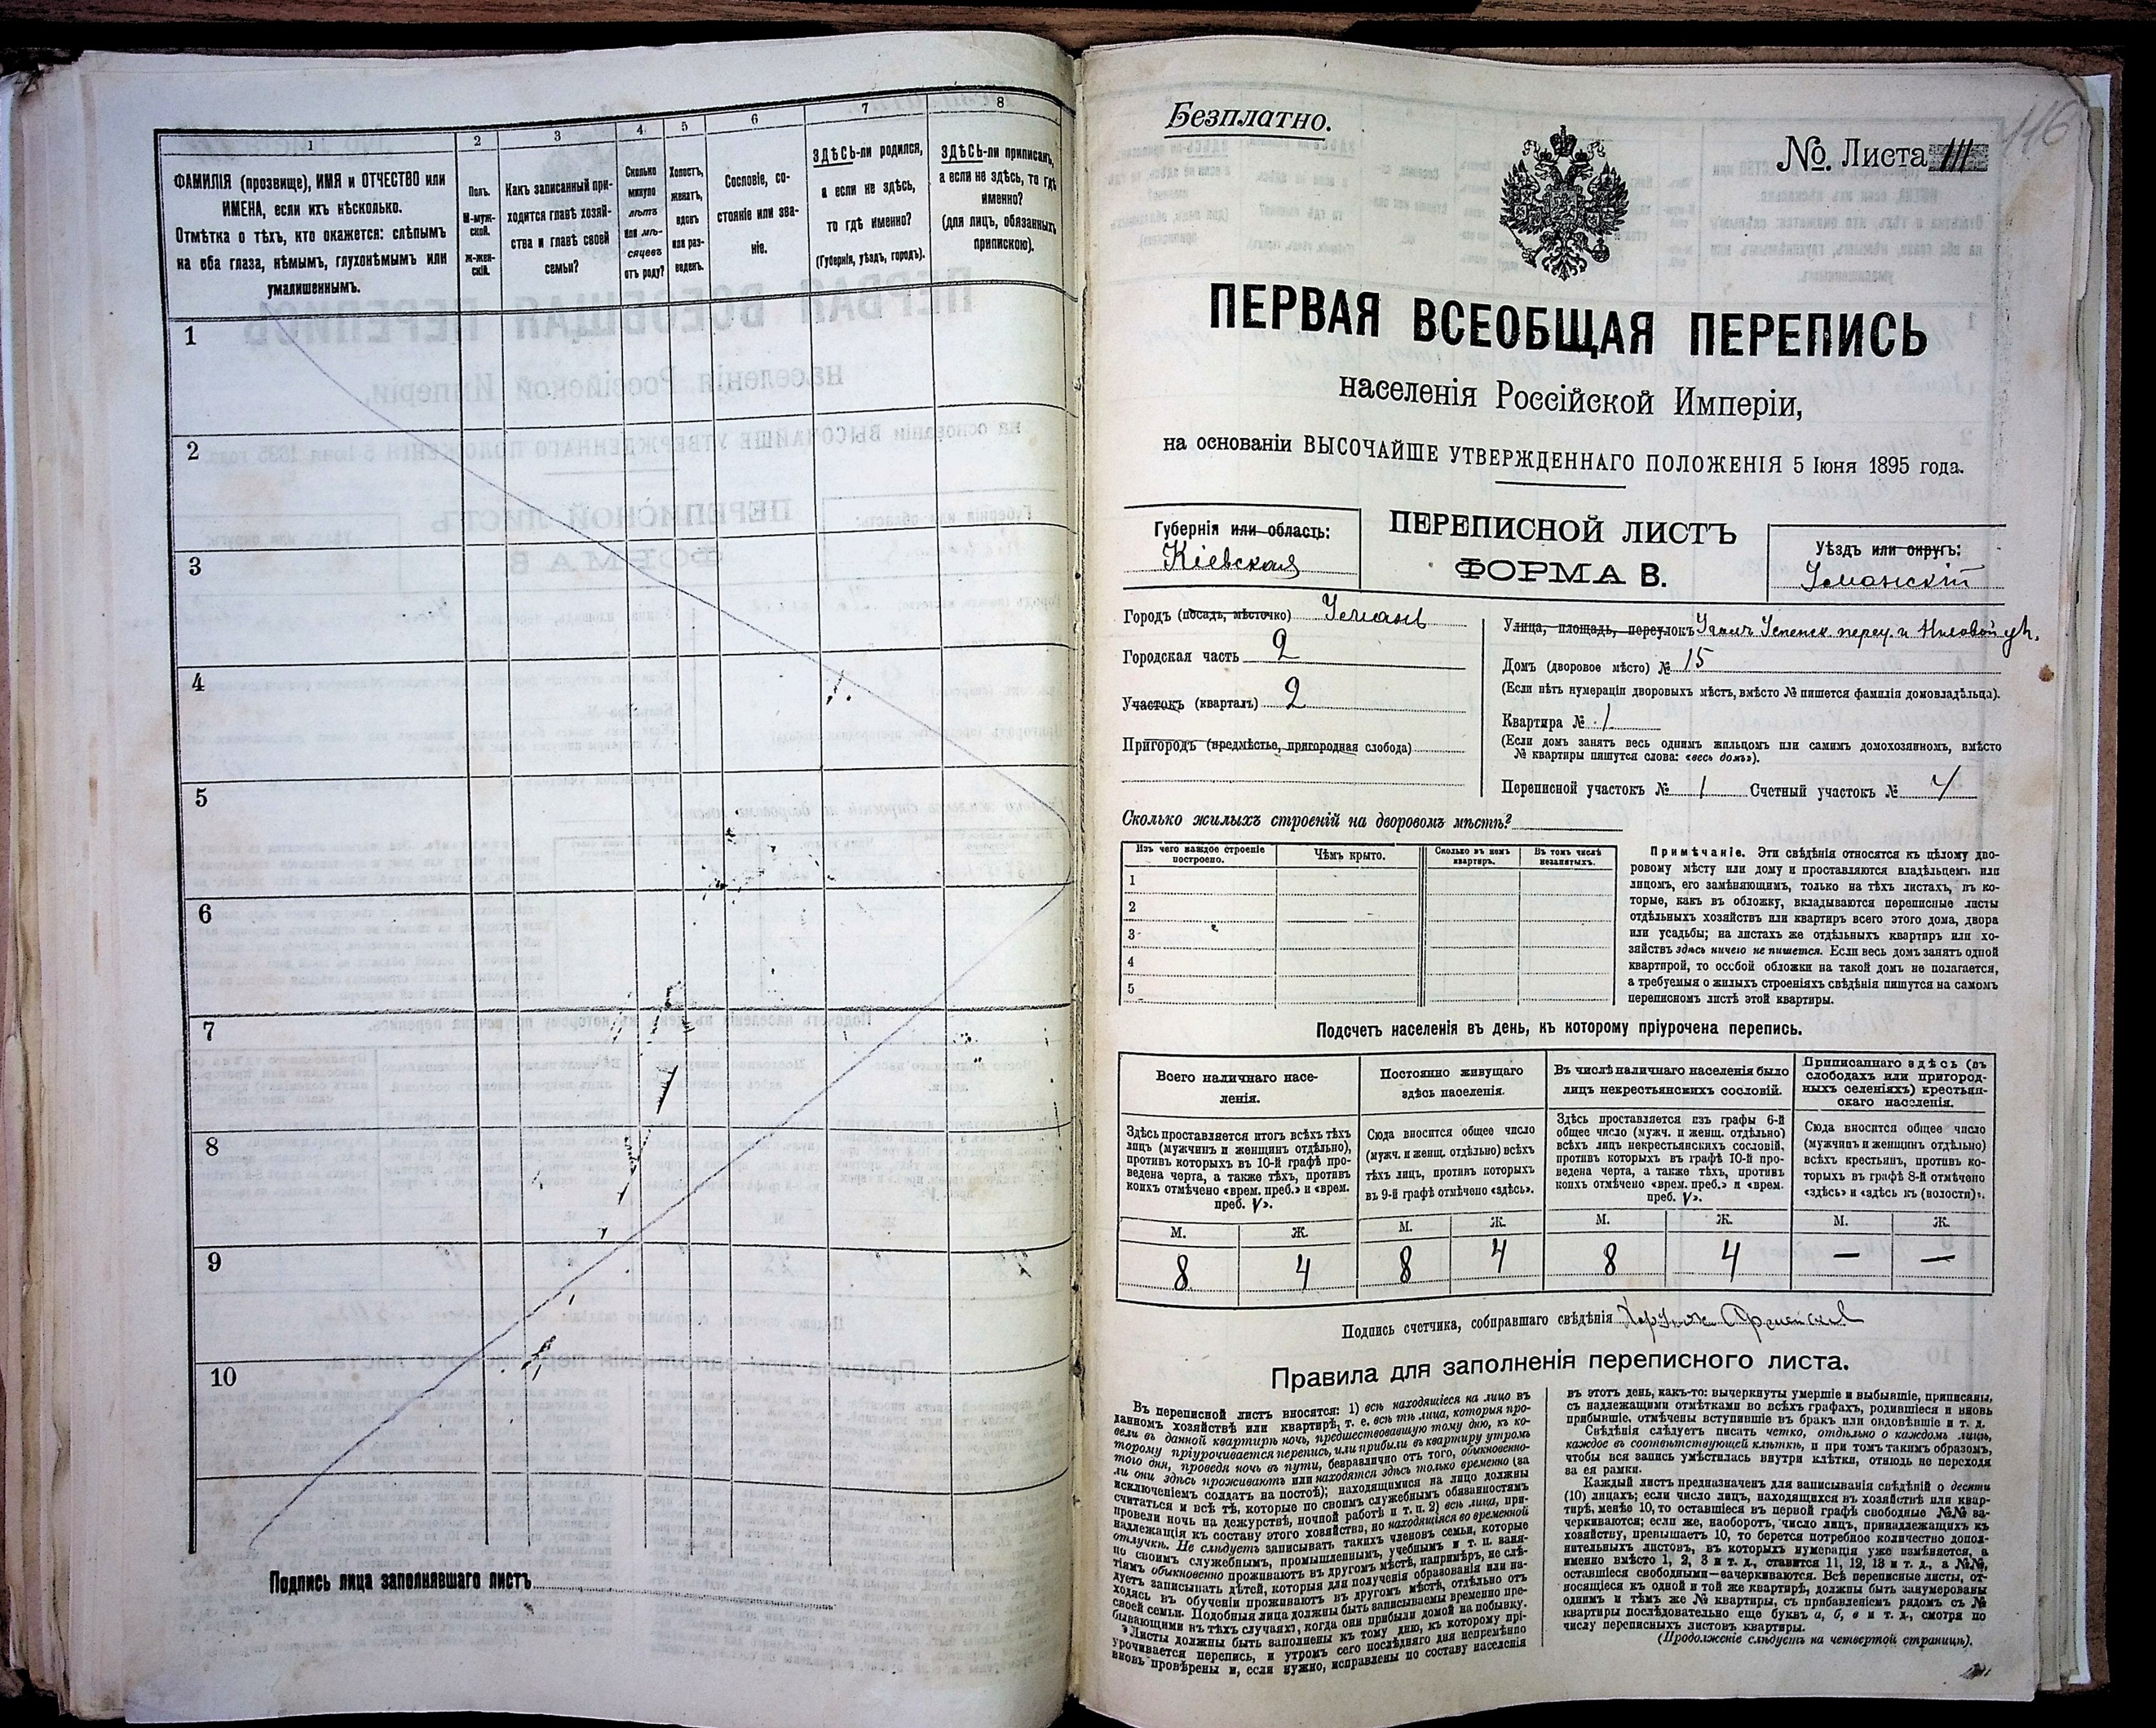 1
2
3
4
5
6
7
8
ФАМИЛІЯ (прозвище), ИМЯ и ОТЧЕСТВО или
ИМЕНА, если ихъ нѣсколько.
Отмѣтка о тѣхъ, кто окажется: слѣпымъ
на оба глаза, нѣмымъ, глухонѣмымъ или
умалишеннымъ.
Полъ.
М-муж-
ской.
ж-жен-
скій.
Какъ записанный при-
ходится главѣ хозяй-
ства и главѣ своей
семьи?
Сколько
минуло
лѣтъ
или мѣ-
сяцевъ
отъ роду?
Холостъ,
женатъ,
вдовъ
или раз-
веденъ.
Сословіе, со-
стояніе или зва-
ніе.
ЗДѢСЬ-ли родился,
а если не здѣсь,
то гдѣ именно?
(Губернія, уѣздъ, городъ).
ЗДѢСЬ-ли приписанъ,
а если не здѣсь, то гдѣ
именно?
(для лицъ, обязанныхъ
припискою).
1
2
3
4
5
6
7
8
9
10
Подпись лица заполнявшаго листъ
116
Безплатно.
№ Листа 111
ПЕРВАЯ ВСЕОБЩАЯ ПЕРЕПИСЬ
населенія Россійской Имперіи,
на основаніи ВЫСОЧАЙШЕ УТВЕРЖДЕННАГО ПОЛОЖЕНІЯ 5 Іюня 1895 года.
Губернія или область:
Кіевская
ПЕРЕПИСНОЙ ЛИСТЪ
ФОРМА В.
Уѣздъ или округъ:
Уманскій
Городъ (посадъ, мѣсточко) Умань
Городская часть 2
Участокъ (кварталъ) 2
Пригородъ (предмѣстье, пригородная слобода)
Улица, площадь, переулокъ
Домъ (дворовое мѣсто) № 15
(Если нѣтъ нумераціи дворовыхъ мѣстъ, вмѣсто № пишется фамилія домовладѣльца).
Квартира № 1
(Если домъ занятъ весь однимъ жильцомъ или самимъ домохозяиномъ, вмѣсто
№ квартиры пишутся слова: «весь домъ»).
Переписной участокъ № 1 Счетный участокъ № 4
Сколько жилыхъ строеній на дворовомъ мѣстѣ?
Изъ чего каждое строеніе
построено.
Чѣмъ крыто.
Сколько въ немъ
квартиръ.
Въ томъ числѣ
незанятыхъ.
1
2
3
4
5
Примѣчаніе. Эти свѣдѣнія относятся къ цѣлому дво-
ровому мѣсту или дому и проставляются владѣльцемъ или
лицомъ, его замѣняющимъ, только на тѣхъ листахъ, въ ко-
торые, какъ въ обложку, вкладываются переписные листы
отдѣльныхъ хозяйствъ или квартиръ всего этого дома, двора
или усадьбы; на листахъ же отдѣльныхъ квартиръ или хо-
зяйствъ здѣсь ничего не пишется. Если весь домъ занятъ одной
квартирой, то особой обложки на такой домъ не полагается,
а требуемыя о жилыхъ строеніяхъ свѣдѣнія пишутся на самомъ
переписномъ листѣ этой квартиры.
Подсчетъ населенія въ день, къ которому пріурочена перепись.
Всего наличнаго насе-
ленія.
Постоянно живущаго
здѣсь населенія.
Въ числѣ наличнаго населенія было
лицъ некрестьянскихъ сословій.
Приписаннаго здѣсь (въ
слободахъ или пригород-
ныхъ селеніяхъ) крестьян-
скаго населенія.
Здѣсь проставляется итогъ всѣхъ тѣхъ
лицъ (мужчинъ и женщинъ отдѣльно),
противъ которыхъ въ 10-й графѣ про-
ведена черта, а также тѣхъ, противъ
коихъ отмѣчено «врем. преб.» и «врем.
преб. V».
Сюда вносится общее число
(мужч. и женщ. отдѣльно) всѣхъ
тѣхъ лицъ, противъ которыхъ
въ 9-й графѣ отмѣчено «здѣсь».
Здѣсь проставляется изъ графы 6-й
общее число (мужч. и женщ. отдѣльно)
всѣхъ лицъ некрестьянскихъ сословій,
противъ которыхъ въ графѣ 10-й про-
ведена черта, а также тѣхъ, противъ
коихъ отмѣчено «врем. преб.» и «врем.
преб. V».
Сюда вносится общее число
(мужчинъ и женщинъ отдѣльно)
всѣхъ крестьянъ, противъ ко-
торыхъ въ графѣ 8-й отмѣчено
«здѣсь» и «здѣсь къ (волости)».
М. Ж. М. Ж. М. Ж. М. Ж.
8 4 8 4 8 4 — —
Подпись счетчика, собиравшаго свѣдѣнія
Правила для заполненія переписного листа.
Въ переписной листъ вносятся: 1) всѣ находящіеся на лицо въ
данномъ хозяйствѣ или квартирѣ, т. е. всѣ тѣ лица, которыя про-
вели въ данной квартирѣ ночь, предшествовавшую тому дню, къ ко-
торому пріурочивается перепись, или прибыли въ квартиру утромъ
того дня, проведя ночь въ пути, безразлично отъ того, обыкновенно-
ли они здѣсь проживаютъ или находятся здѣсь только временно (за
исключеніемъ солдатъ на постоѣ); находящимися на лицо должны
считаться и всѣ тѣ, которые по своимъ служебнымъ обязанностямъ
провели ночь на дежурствѣ, ночной работѣ и т. п. 2) всѣ лица, при-
надлежащія къ составу этого хозяйства, но находящіяся во временной
отлучкѣ. Не слѣдуетъ записывать такихъ членовъ семьи, которые
по своимъ служебнымъ, промышленнымъ, учебнымъ и т. п. заня-
тіямъ обыкновенно проживаютъ въ другомъ мѣстѣ, напримѣръ, не слѣ-
дуетъ записывать дѣтей, которыя для полученія образованія или на-
ходясь въ обученіи проживаютъ въ другомъ мѣстѣ, отдѣльно отъ
своей семьи. Подобныя лица должны быть записываемы временно пре-
бывающими въ тѣхъ случаяхъ, когда они прибыли домой на побывку.
Листы должны быть заполнены къ тому дню, къ которому прі-
урочивается перепись, и утромъ сего послѣдняго дня непремѣнно
вновь провѣрены и, если нужно, исправлены по составу населенія
въ этотъ день, какъ-то: вычеркнуты умершіе и выбывшіе, приписаны,
съ надлежащими отмѣтками во всѣхъ графахъ, родившіеся и вновь
прибывшіе, отмѣчены вступившіе въ бракъ или овдовѣвшіе и т. д.
Свѣдѣнія слѣдуетъ писать четко, отдѣльно о каждомъ лицѣ,
каждое въ соотвѣтствующей клѣткѣ, и при томъ такимъ образомъ,
чтобы вся запись умѣстилась внутри клѣтки, отнюдь не переходя
за ея рамки.
Каждый листъ предназначенъ для записыванія свѣдѣній о десяти
(10) лицахъ; если число лицъ, находящихся въ хозяйствѣ или квар-
тирѣ, менѣе 10, то оставшіеся въ первой графѣ свободные №№ за-
черкиваются; если же, наоборотъ, число лицъ, принадлежащихъ къ
хозяйству, превышаетъ 10, то берется потребное количество допол-
нительныхъ листовъ, въ которыхъ нумерація уже измѣняется, а
именно вмѣсто 1, 2, 3 и т. д., ставится 11, 12, 13 и т. д., а №№,
оставшіеся свободными—зачеркиваются. Всѣ переписные листы, от-
носящіеся къ одной и той же квартирѣ, должны быть занумерованы
однимъ и тѣмъ же № квартиры, съ прибавленіемъ рядомъ съ №
квартиры послѣдовательно еще буквъ а, б, в и т. д., смотря по
числу переписныхъ листовъ квартиры.
(Продолженіе слѣдуетъ на четвертой страницѣ).